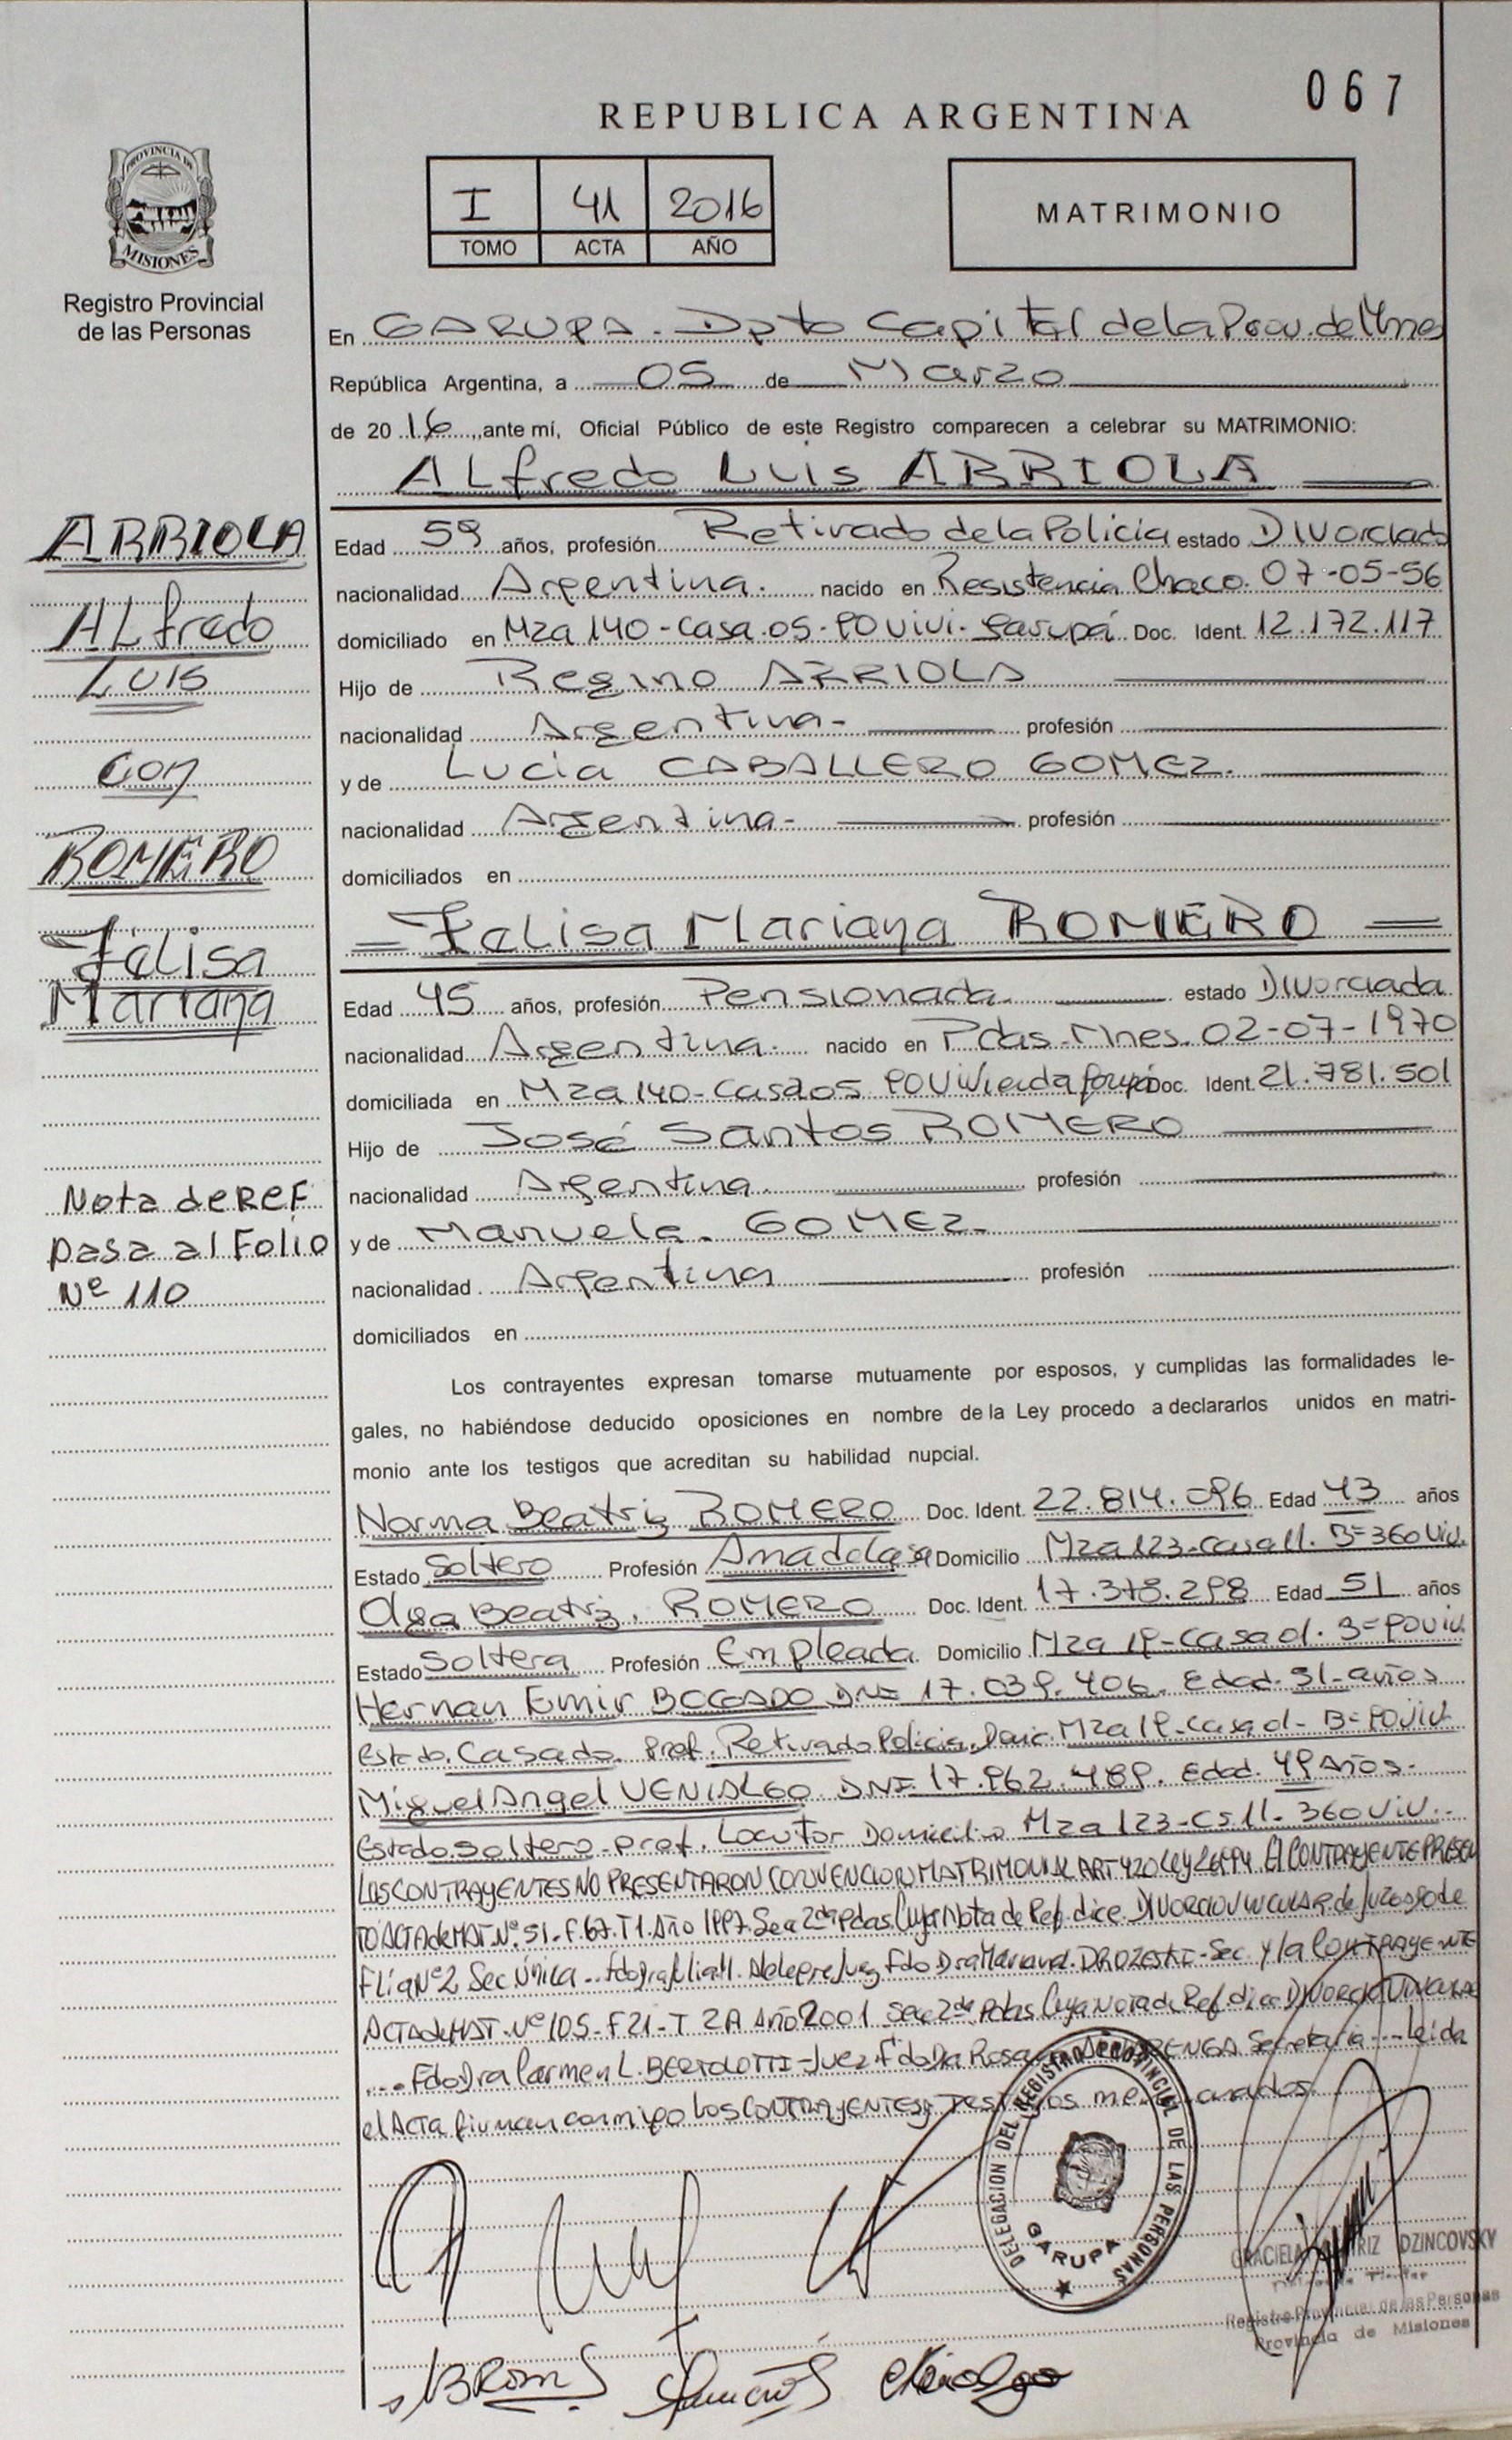 067
REPUBLICA ARGENTINA
PROVINCIA DE
MISIONES
Registro Provincial
de las Personas
I 41 2016
TOMO ACTA AÑO
MATRIMONIO
En GARUPA. Dpto Capital de la Prov. de Mnes
República Argentina, a 05 de Marzo
de 2016, ante mí, Oficial Público de este Registro comparecen a celebrar su MATRIMONIO:
ALfredo Luis ARRIOLA
ARRIOLA
ALfredo
Luis
con
ROMERO
Felisa
Mariana
Nota de Ref
pasa al Folio
Nº 110
Edad 59 años, profesión Retirado de la Policia estado Divorciado
nacionalidad Argentina. nacido en Resistencia Chaco. 07-05-56
domiciliado en Mza 140-Casa.05-POvivi. Garupá Doc. Ident. 12.172.117
Hijo de Regino ARRIOLA
nacionalidad Argentina- profesión
y de Lucia CABALLERO GOMEZ.
nacionalidad Argentina- profesión
domiciliados en
Felisa Mariana ROMERO
Edad 45 años, profesión Pensionada. estado Divorciada
nacionalidad Argentina. nacido en Pdas-Mnes. 02-07-1970
domiciliada en Mza 140-Casa05 Doc. Ident. 21.781.501
Hijo de José Santos ROMERO
nacionalidad Argentina. profesión
y de Manuela. GOMEZ-
nacionalidad Argentina profesión
domiciliados en
Los contrayentes expresan tomarse mutuamente por esposos, y cumplidas las formalidades le-
gales, no habiéndose deducido oposiciones en nombre de la Ley procedo a declararlos unidos en matri-
monio ante los testigos que acreditan su habilidad nupcial.
Norma Beatriz ROMERO Doc. Ident. 22.814.096 Edad 43 años
Estado Soltero Profesión Ama de casa Domicilio Mza 123-casa 11. B=360 Viv.
Olga Beatriz. ROMERO Doc. Ident. 17.378.298 Edad 51 años
Estado Soltera Profesión Empleada Domicilio Mza 19-Casa 01. B=POviv.
Hernan Emir BOGADO DNI 17.039.406. Edad. 51-años
Estado. Casado. Prof. Retirado Policia. Domic Mza 19-casa 01- B=POviv.
Miguel Angel VENIALGO DNI. 17.962.489. Edad. 49 Años.
Estado soltero-prof. Locutor Domicilio Mza 123-Cs 11- 360 Viv.
LOS CONTRAYENTES NO PRESENTARON CONVENCION MATRIMONIAL ART 420 Ley 26994. El CONTRAYENTE PRESEN
TO ACTA de MAT. Nº. 51-F.67. T1. Año 1997. Sec 2da Pdas. Cuya Nota de Ref. dice. DIVORCIO VINCULAR. de Juzgado de
Flia Nº2 Sec Única Juez Fdo Dra Mariana. Sec. y la CONTRAYENTE
ACTA de MAT. Nº 105-F21-T 2A Año 2001 Sec 2da Pdas Cuya Nota de Ref. dice DIVORCIO VINCULAR
.... Fdo Dra Carmen L. BERTOLOTTI-Juez. Fdo Dra Rosa Secretaria .... Leida
el Acta firman conmigo los CONTRAYENTES y Testigos mencionados.
DELEGACION DEL REGISTRO PROVINCIAL DE LAS PERSONAS
GARUPA
GRACIELA DZINCOVSKY
Registro Provincial de las Personas
Provincia de Misiones